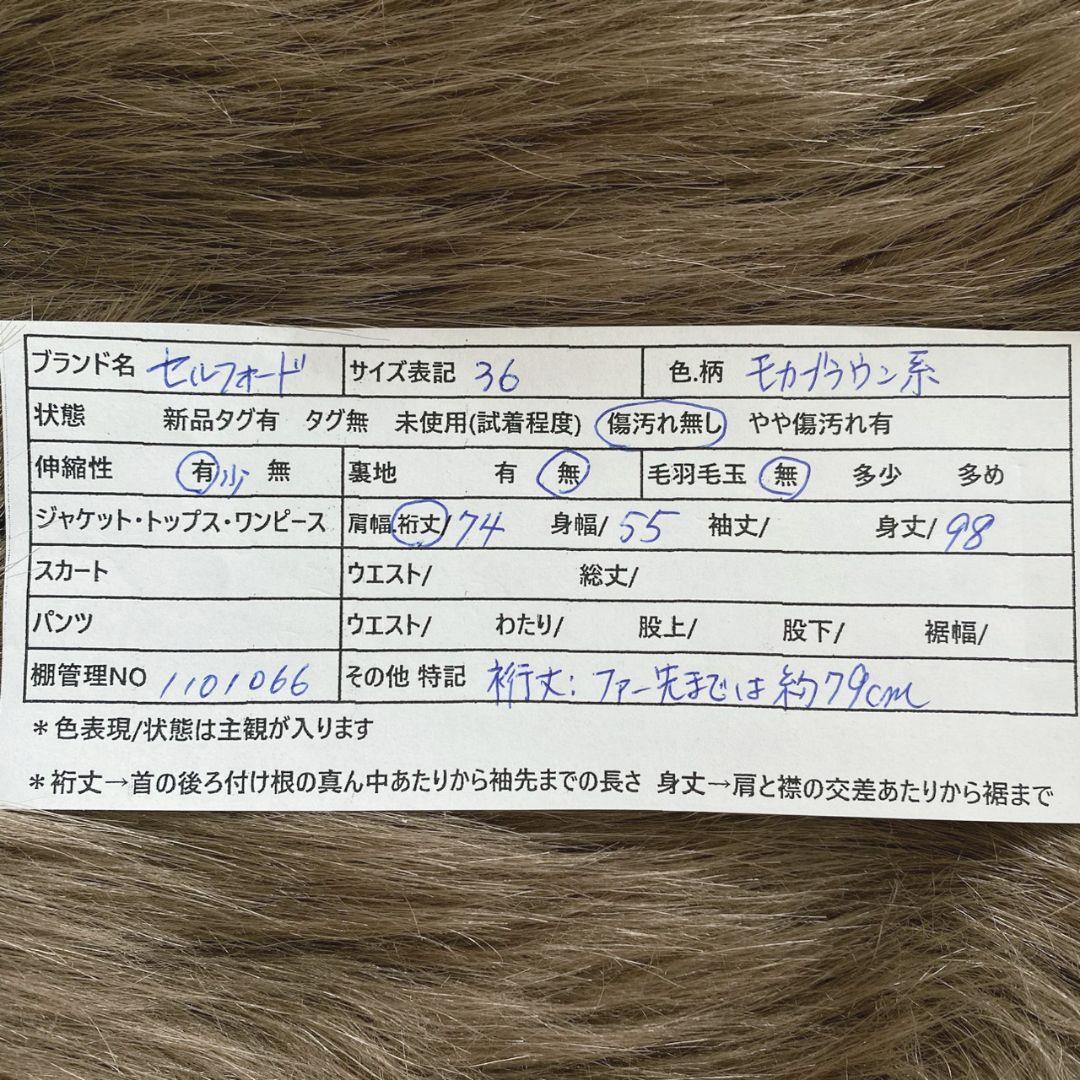 ブランド名 セルフォード サイズ表記 36 色.柄 モカブラウン系
状態 新品タグ有 タグ無 未使用(試着程度) 傷汚れ無し やや傷汚れ有
伸縮性 有少 無 裏地 有 無 毛羽毛玉 無 多少 多め
ジャケット・トップス・ワンピース 肩幅.裄丈/74 身幅/55 袖丈/ 身丈/98
スカート ウエスト/ 総丈/
パンツ ウエスト/ わたり/ 股上/ 股下/ 裾幅/
棚管理NO 1101066 その他 特記 裄丈:ファー先までは約79cm
＊色表現/状態は主観が入ります
＊裄丈→首の後ろ付け根の真ん中あたりから袖先までの長さ 身丈→肩と襟の交差あたりから裾まで